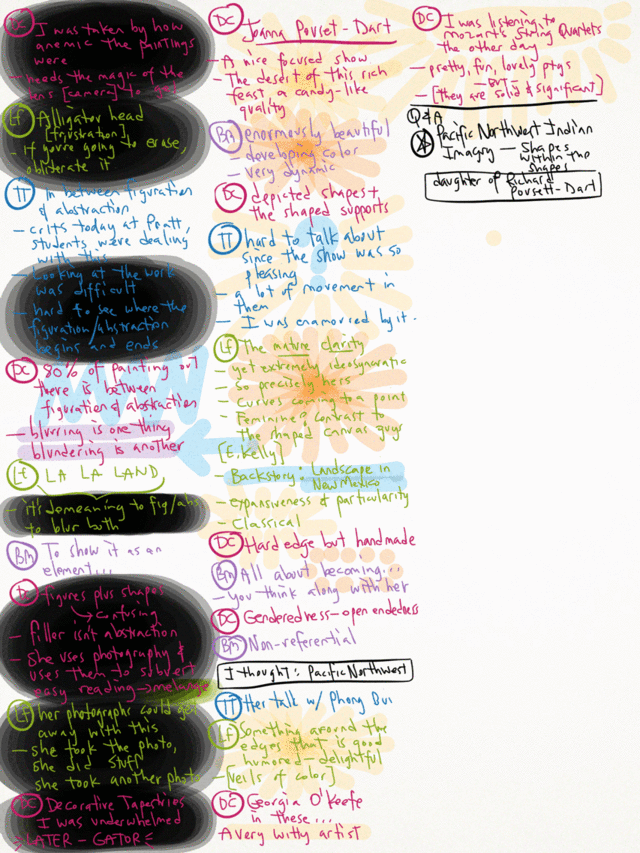 DC I was taken by how
anemic the paintings
were
— needs the magic of the
lens [camera] to
Lf Alligator head
[frustration]
— if you're going to erase,
obliterate it
TT In between figuration
& abstraction
— crits today at Pratt,
students were dealing
with this
— Looking at the work
was difficult
— hard to see where the
figuration/abstraction
begins and ends
DC 80% of painting out
there is between
figuration & abstraction
— blurring is one thing
blundering is another
Lf LA LA LAND
— it's demeaning to fig/abs
to blur both
BM To show it as an
element...
DC figures plus shapes
→ confusing
— filler isn't abstraction
— She uses photography &
uses them to subvert
easy reading → melange
Lf her photographs could get
away with this
— she took the photo,
she did stuff
she took another photo
DC Decorative Tapestries
I was underwhelmed
> LATER – GATOR <
DC Joanna Pouset-Dart
— A nice focused show
— The desert of this rich
feast, a candy-like
quality
BM enormously beautiful
— developing color
— very dynamic
DC depicted shapes +
the shaped supports
TT hard to talk about
since the show was so
pleasing
— a lot of movement in
them
— I was enamored by it.
Lf The mature clarity
— yet extremely ideosyncratic
— so precisely hers
— curves coming to a point
— Feminine? contrast to
the shaped canvas guys
[E. Kelly]
— Backstory: Landscape in
New Mexico
— expansiveness & particularity
— Classical
DC Hard edge but handmade
BM All about becoming...
— you think along with her
DC Genderedness – open endedness
BM Non-referential
I thought: Pacific Northwest
TT Her talk w/ Phong Bui
Lf Something around the
edges that is good
humored – delightful
— [veils of color]
DC Georgia O'Keefe
in these...
A very witty artist
DC I was listening to
mozarts String Quartets
the other day
— pretty, fun, lovely ptgs
— BUT —
— [they are solid & significant]
Q & A
Pacific Northwest Indian
Imagery — Shapes
within the
shapes
daughter of Richard
Pousett-Dart